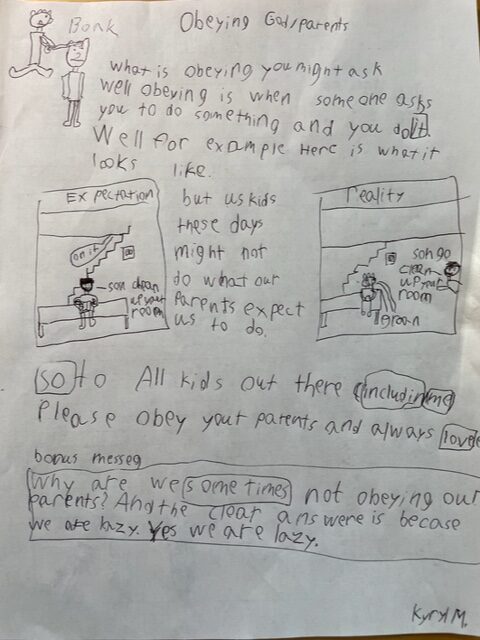 Bonk
Obeying God/parents
what is obeying you might ask
Well obeying is when someone asks
you to do something and you do It.
Well for example Here is what it
looks like.
Expectation
on it
son clean
up your
room
but us kids
these days
might not
do what our
Parents expect
us to do.
reality
son go
clean
up your
room
groan
so to All kids out there (includin me
Please obey your parents and always love
bonus messeg
Why are we sometimes not obeying our
parents? And the clear answere is becase
we are lazy. Yes we are lazy.
Kyryl M.